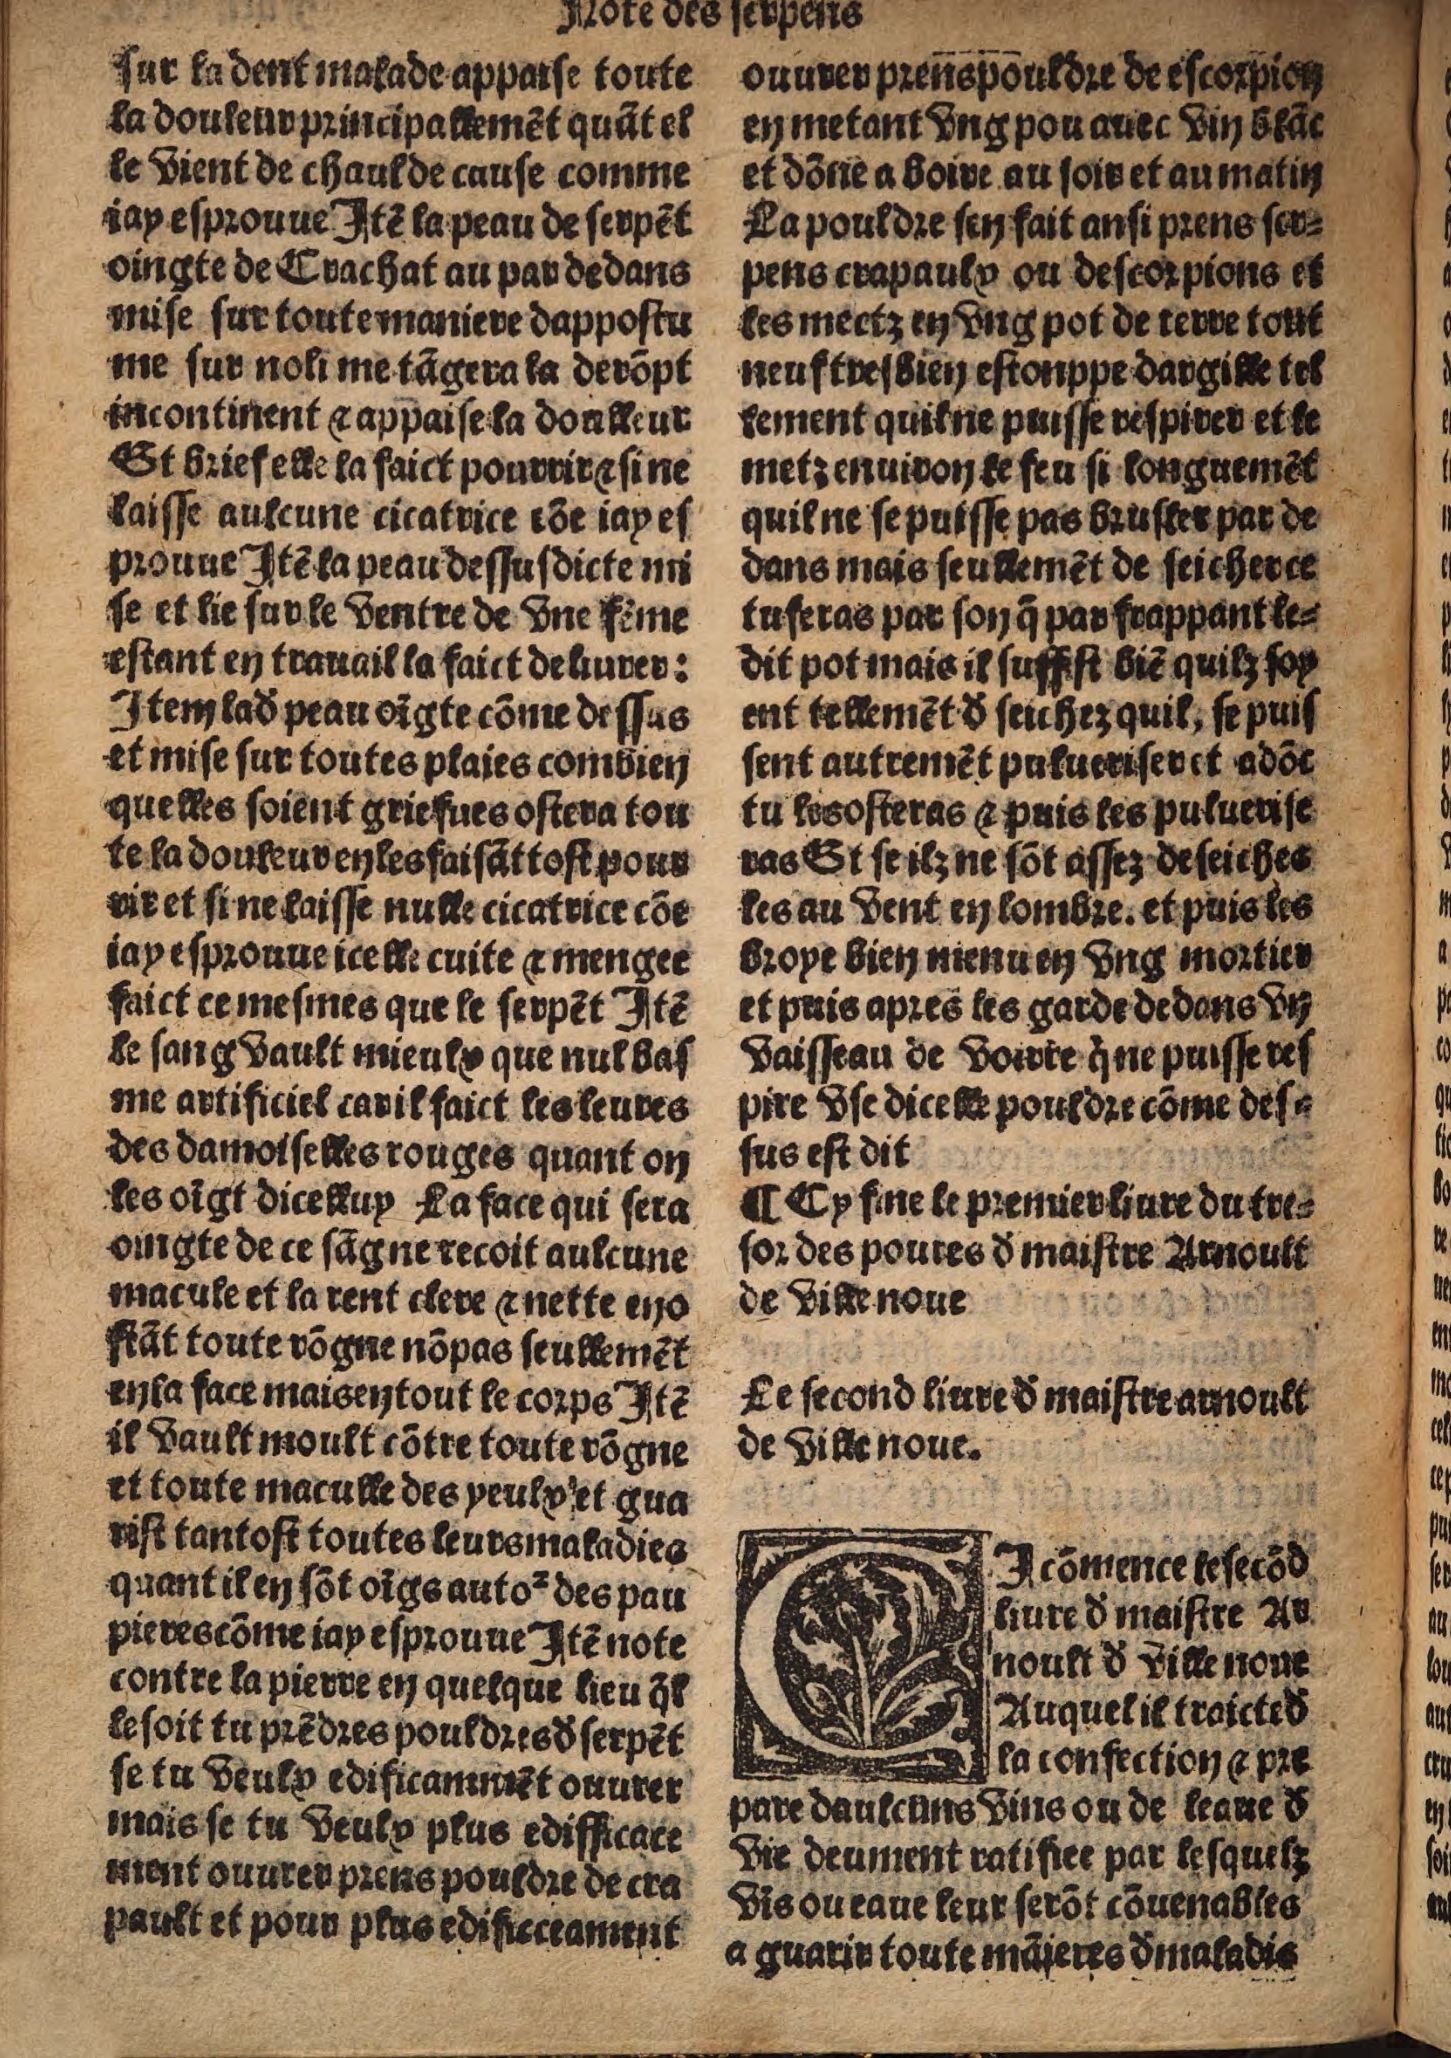 Note des serpens
sur la dent malade appaise toute
la douleur principallemēt quāt el
le vient de chaulde cause comme
iay esprouue Itē la peau de serpēt
oingte de Crachat au par dedans
mise sur toute maniere dappostu
me sur noli me tāgera la derōpt
incontinent ⁊ appaise la doulleur
Et brief elle la faict pourrir ⁊ si ne
laisse aulcune cicatrice cōe iay es
prouue Itē la peau dessusdicte mi
se et lie sur le ventre de vne fēme
estant en trauail la faict deliurer:
Item lad peau oīgte cōme dessus
et mise sur toutes plaies combien
quelles soient griefues ostera tou
te la douleur en les faisāt tost pour
rir et si ne laisse nulle cicatrice cōe
iay esprouue icelle cuite ⁊ mengee
faict ce mesmes que le serpēt Itē
le sang vault mieulx que nul bas
me artificiel car il faict les leures
des damoiselles rouges quant on
les oīgt dicelluy La face qui sera
oingte de ce sāg ne recoit aulcune
macule et la rent clere ⁊ nette en o
stāt toute rōgne nō pas seullemēt
en la face mais en tout le corps Itē
il vault moult cōtre toute rōgne
et toute maculle des yeulx et gua
rist tantost toutes leurs maladies
quant il en sōt oīgs autoꝛ des pau
pieres cōme iay esprouue Itē note
contre la pierre en quelque lieu q̄l
le soit tu prēdres pouldres đ serpēt
se tu veulx edificammēt ouurer
mais se tu veulx plus edifficace
ment ouurer prens pouldre de cra
pault et pour plus edificceament
ouurer prens pouldre de escorpion
en metant vng pou auec vin blāc
et dōne a boire au soir et au matin
La pouldre sen fait ansi prens ser-
pens crapaulx ou descorpions et
les mectz en vng pot de terre tout
neuf tresbien estouppe dargille tel
lement quil ne puisse respirer et le
metz enuiron le feu si longuemēt
quil ne se puisse pas brusler par de
dans mais seullemēt de seicher ce
tu feras par son q̄ par frappant le-
dit pot mais il suffist biē quilz soy
ent tellemēt đ seichez quil, se puis
sent autremēt pulueriser et adōc
tu les osteras ⁊ puis les puluerise
ras Et se ilz ne sōt assez deseiches
les au vent en lombre. et puis les
broye bien menu en vng mortier
et puis apres les garde dedans vn
vaisseau de voirre q̄ ne puisse res
pire vse dicelle pouldre cōme des-
sus est dit
¶ Cy fine le premier liure du tre-
sor des poures đ maistre Arnoult
de ville noue
Le second liure đ maistre arnoult
de ville noue.
CI cōmence le secōd
liure đ maistre Ar
noult đ ville noue
Auquel il traicte đ
la confection ⁊ pre
pare daulcuns vins ou de leaue đ
vie deument ratifiee par lesquelz
vis ou eaue leur serōt cōuenables
a guarir toute māieres đ maladis